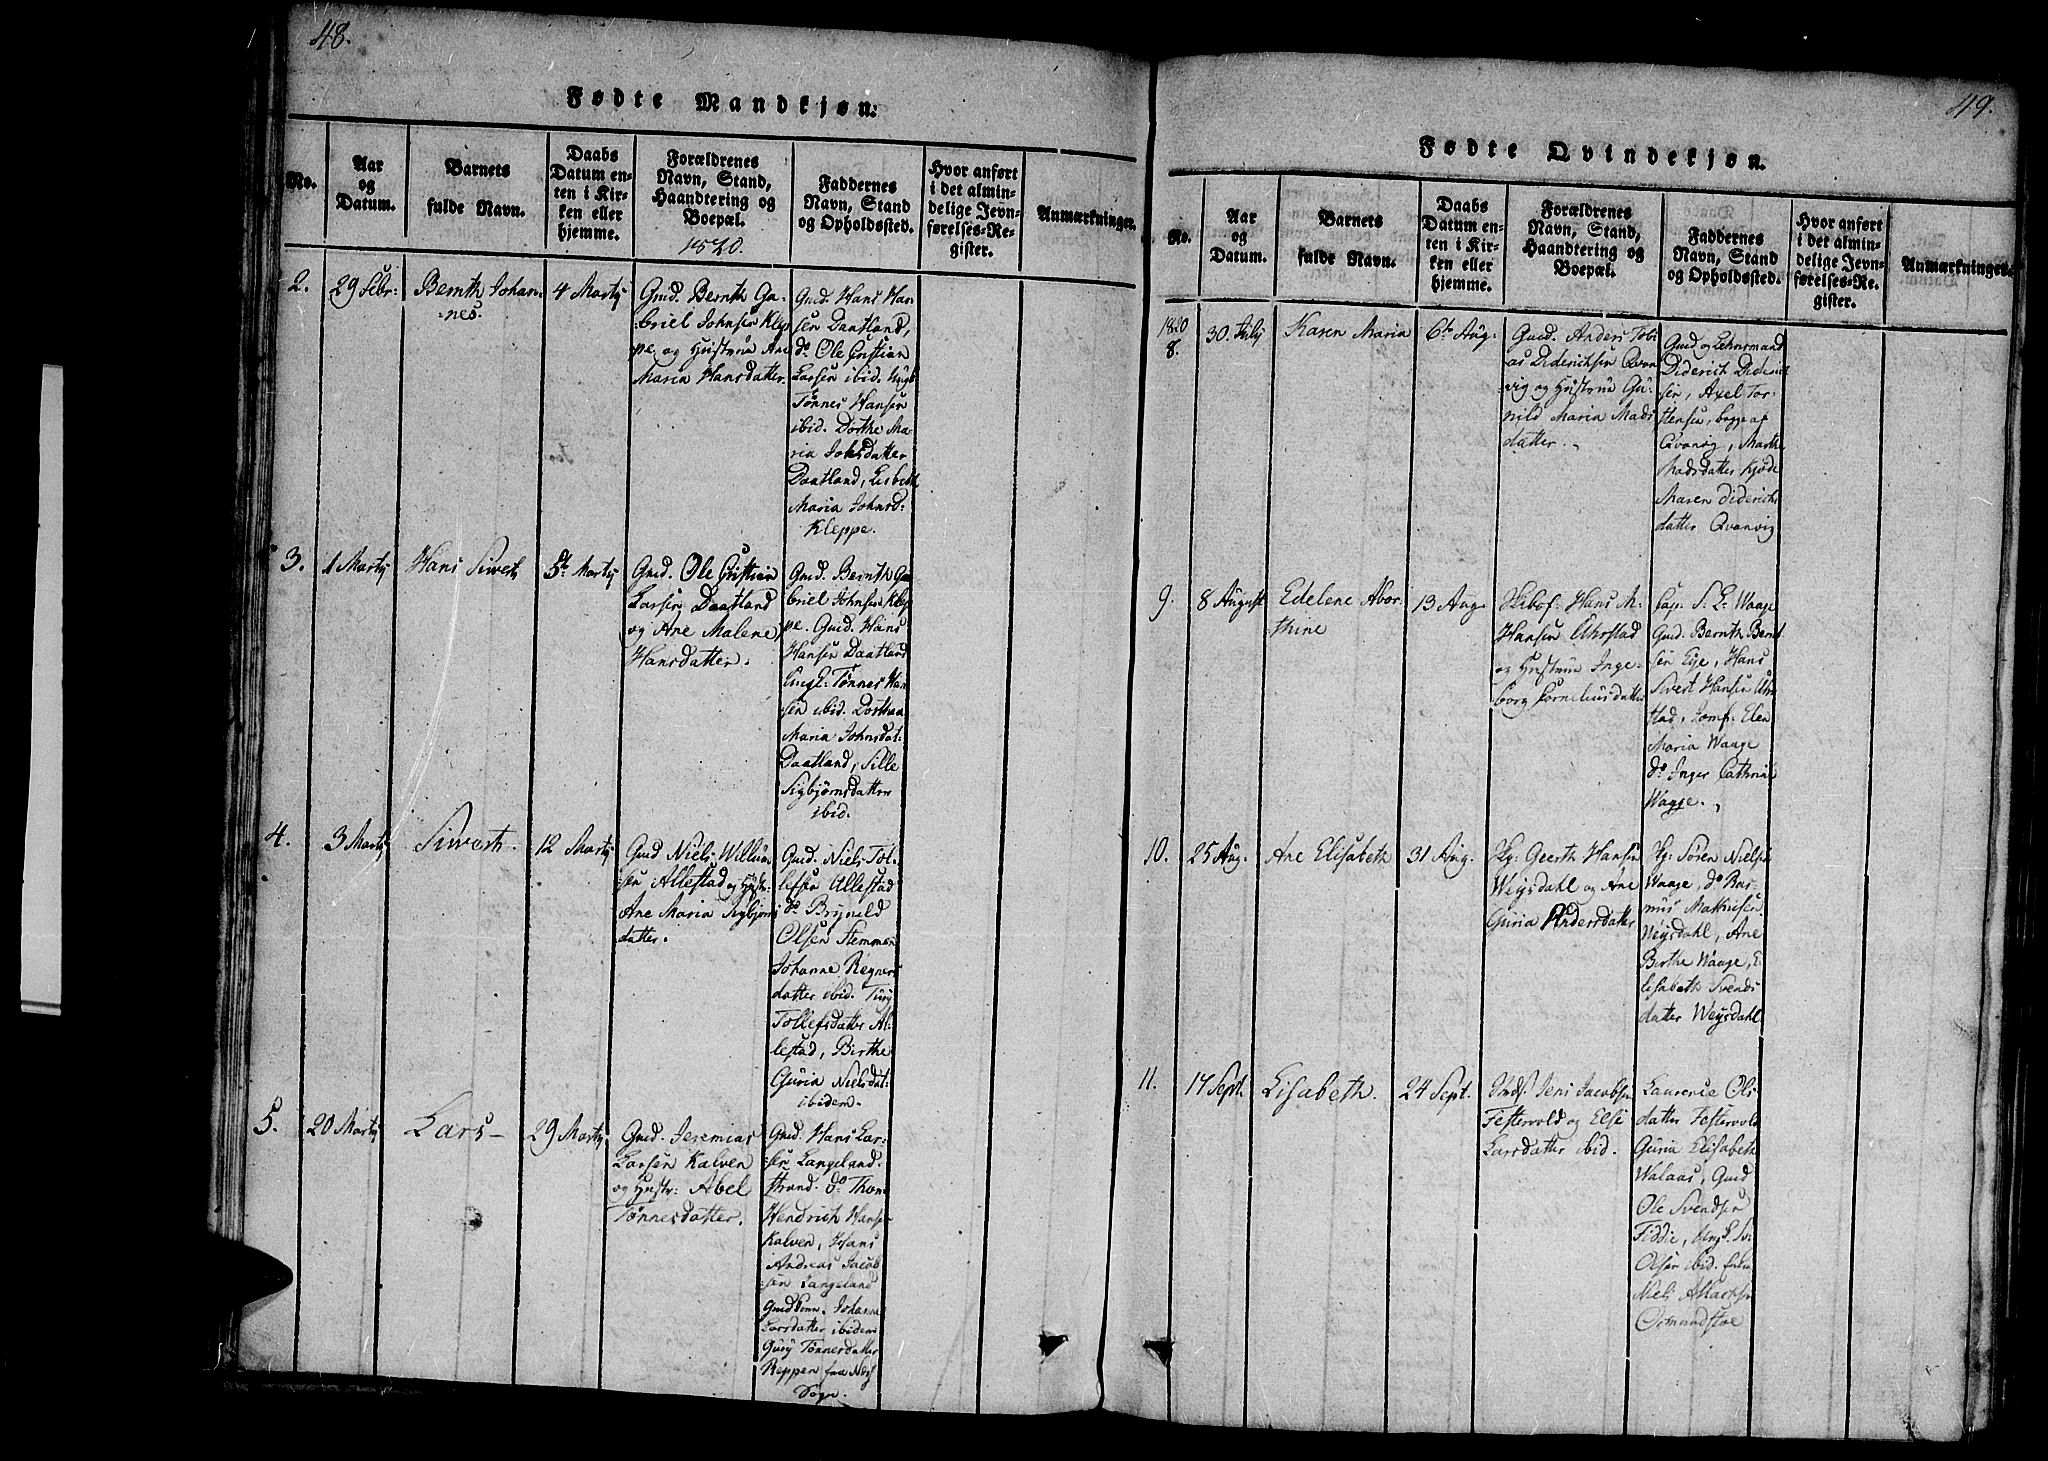 48.
Fødte Mandkjøn.
No.
Aar
og
Datum.
Barnets
fulde Navn.
Daabs
Datum en-
ten i Kir-
ken eller
hjemme.
Forældrenes
Navn, Stand,
Haandtering og
Boepæl.
1820.
Faddernes
Navn, Stand
og Opholdssted.
Hvor anført
i det almin-
delige Jevn-
førelses-Re-
gister.
Anmærkninger.
2.
29 Febr:
Bernth Johan-
nes.
4 Martij
Gmd. Bernth Ga-
briel Johnsen Klep
pe og Hustrue Ane
Maria Hansdatter.
Gmd. Hans Han
sen Daatland,
do Ole Cristian
Larsen ibid. Ungk
Tønnes Hansen
ibid. Dorthe Ma-
ria Johsdatter
Daatland, Lisbeth
Maria Johnsd-
Kleppe.
3.
1 Martij
Hans Siwert
5te Martij
Gmd. Ole Cristian
Larsen Daatland
og Ane Malene
Hansdatter.
Gmd. Bernth Ga
briel Johnsen Klep
pe. Gmd. Hans
Hansen Daatland
Ungk: Tønnes Han
sen ibid. Dorthea
Maria Johnsdat:
Daatland, Sille
Sigbjørnsdatter
ibid.
4.
3 Martij
Siwerth.
12 Martij
Gmd Niels Willum
sen Allestad og Hustr:
Ane Maria Sigbjørns
datter.
Gmd. Niels Tol-
lefsen Allestad
do Bryneld
Olsen Stemmen
Johanne Regners
datter ibid. Turij
Tollefsdatter Al-
lestad, Birthe
Guria Nielsdat:
ibidem.
5.
20 Martij
Lars-
29 Martij
Gmd. Jeremias
Larsen Kalven
og Hustr: Abel
Tønnesdatter.
Gmd. Hans Lar-
sen Langeland.
strand. do Thom
Hendrich Hansen
Kalven, Hans
Andreas Jacob
sen Langeland
Gmd Sønn. Johanne
Larsdatter ibidem
Gurij Tønnesdatter
Reppen fra Næss
Sogn.
49.
Fødte Qvindekjøn.
No.
Aar
og
Datum.
Barnets
fulde Navn.
Daabs
Datum en-
ten i Kir-
ken eller
hjemme.
Forældrenes
Navn, Stand,
Haandtering og
Boepæl.
Faddernes
Navn, Stand
og Opholdssted.
Hvor anført
i det almin-
delige Jevn-
førelses-Re-
gister.
Anmærkninger.
1820
8.
30. July
Karen Maria
6te Aug.
Gmd. Anders Tobi
as Diderichsen Qvan
vig og Hustrue Gu-
nild Maria Mads
datter.
Gmd og Lehnsmand
Diderich Diderich
sen, Axel Tor-
stensen, begge af
Qvanvig, Marthe
Madsdatter Kjøde
Maren Diderichs
datter Qvanvig
9.
8 August
Edelene Abor-
thine
13 Aug.
Hans M.
Hansen Uhrstad
og Hustrue Inge-
borg Corneliusdatter
Cap. S. L. Waage
Gmd. Bernth Bernt
sen Eije, Hans
Sivert Hansen Uhr
stad, Jomf: Elen
Maria Waage
do Inger Cathrine
Waage.
10.
25 Aug.
Ane Elisabeth
31 Aug.
Hg: Geerth Hansen
Weijsdahl og Ane
Guria Andersdatter
Hg: Søren Nielsen
Waage, do Ras-
mus Mathisen
Weijsdahl, Ane
Birthe Waage, E-
lisabeth Svends
datter Weijsdahl
11.
17 Sept.
Elisabeth.
24 Sept.
Jens Jacobsen
Festervold og Else
Larsdatter ibid.
Laurence Ols
datter Festervold
Guria Elisabeth
Walaas, Gmd
Ole Svendsen
Fiddie, Ungk. Sv:
Olsen ibid.
Niels
Osmundstøe